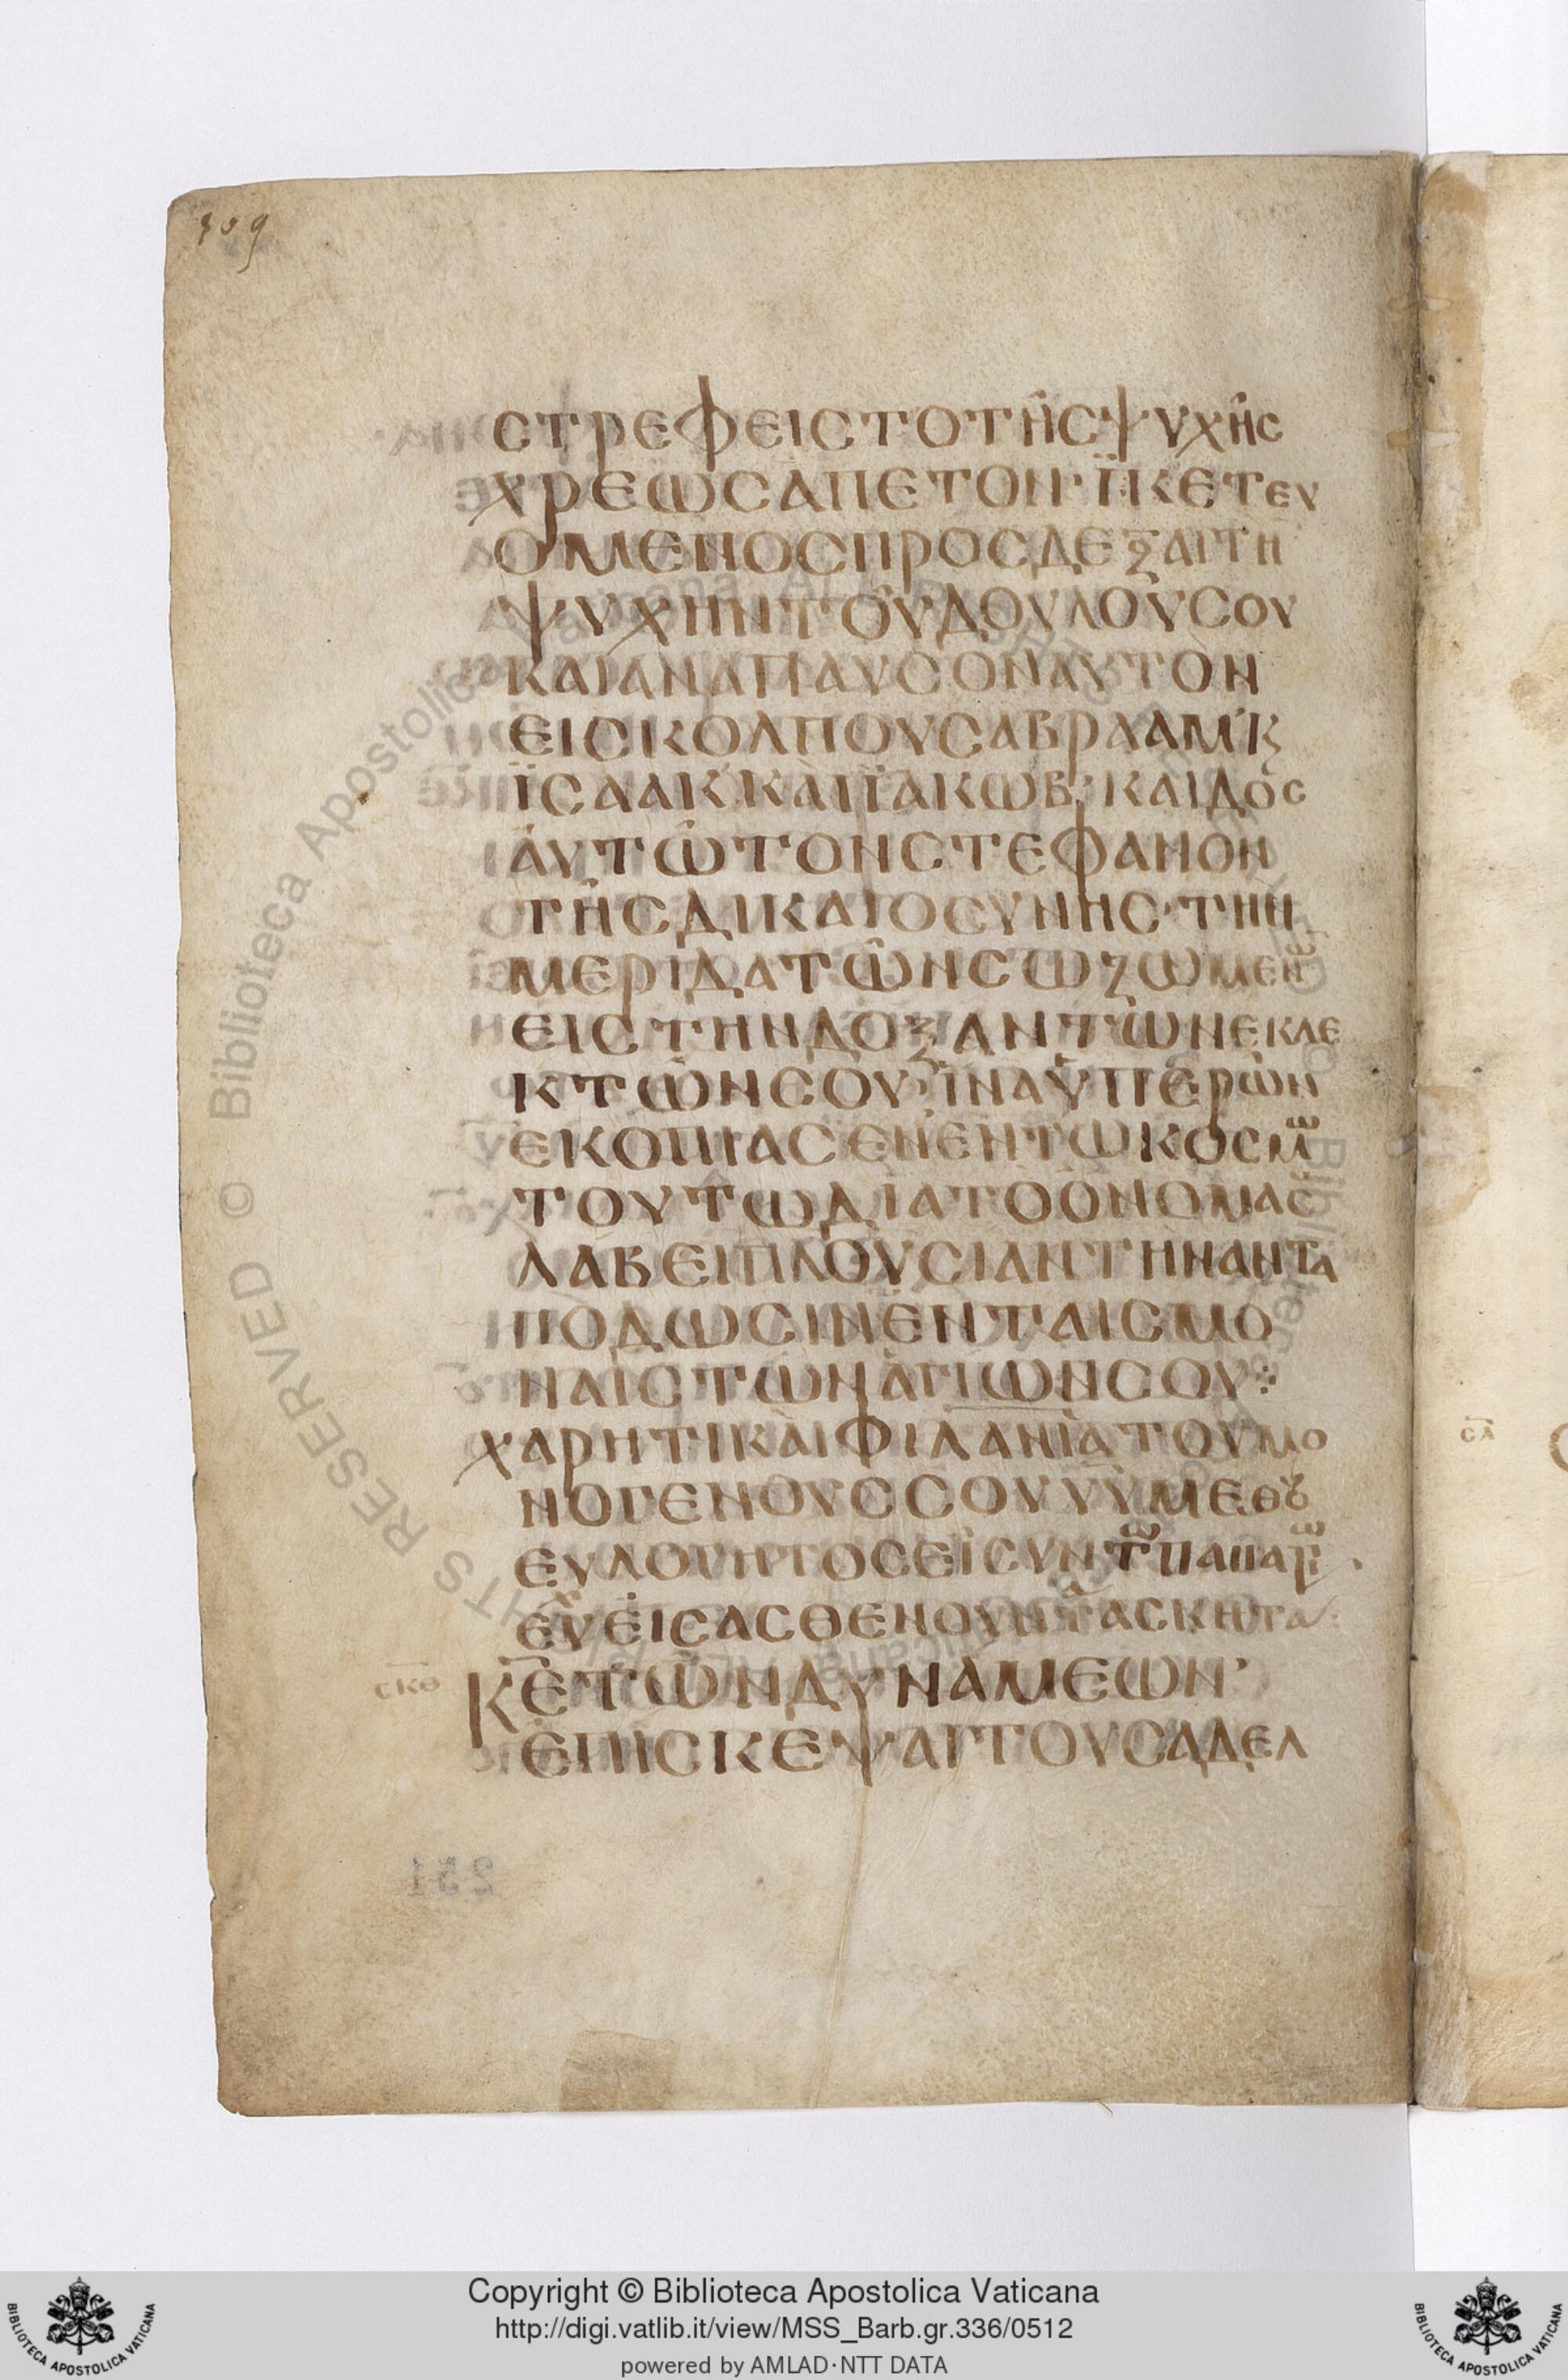 309
ΣΤΡΕΦΕΙΣΤΟΤΗ͂ΣΨΥΧΗ͂Σ
ΧΡΕΩΣΑΠΕΤΟΝ·ΪΚΕΤΕΥ
ΟΜΕΝΟΣΠΡΟΣΔΕΞΑΙΤΗ
ΨΥΧΗΝΤΟΥΔΟΥΛΟΥΣΟΥ
ΚΑΙΑΝΑΠΑΥΣΟΝΑΥΤΟΝ
ΕΙΣΚΟΛΠΟΥΣΑΒΡΑΑΜϏ
ΪΣΑΑΚΚΑΙΪΑΚΩΒ·ΚΑΙΔΟΣ
ΑΥΤΩΤΟΝΣΤΕΦΑΝΟΝ
ΤΗΣΔΙΚΑΙΟΣΥΝΗΣ·ΤΗΝ
ΜΕΡΙΔΑΤΩΝΣΩΖΩΜΕΝῶ
ΕΙΣΤΗΝΔΟΞΑΝΤΩΝΕΚΛΕ
ΚΤΩΝΣΟΥ·ΪΝΑΫΠΕΡΩΝ
ΕΚΟΠΙΑΣΕΝΕΝΤΩΚΟΣΜω
ΤΟΥΤΩΔΙΑΤΟΟΝΟΜΑΣ
ΛΑΒΕΙΠΛΟΥΣΙΑΝΤΗΝΑΝΤΑ
ΠΟΔΩΣΙΝΕΝΤΑΙΣΜΟ
ΝΑΙΣΤΩΝΑΓΙΩΝΣΟΥ:
ΧΑΡΗΤΙΚΑΙΦΙΛΑΝΙΑΤΟΥΜΟ
ΝΟΓΕΝΟΥΣΣΟΥΥΥΜΕΘȣ
ΕΥΛΟΓΗΤΟΣΕΙΣΥΝΤωΠΑΝΑΓΙω
ΕΥΧΕΙΣΑΣΘΕΝΟΥΝΤΑΣΚΗΤΑ
ΣΚΘ
ΚΕΤΩΝΔΥΝΑΜΕΩΝ·
ΕΠΙΣΚΕΨΑΙΤΟΥΣΑΔΕΛ
251
ΣΛ
© Biblioteca Apostolica Vaticana ALL RIGHTS RESERVED
Copyright © Biblioteca Apostolica Vaticana
http://digi.vatlib.it/view/MSS_Barb.gr.336/0512
powered by AMLAD·NTT DATA
BIBLIOTECA APOSTOLICA VATICANA
BIBLIOTECA APOSTOLICA VATICANA